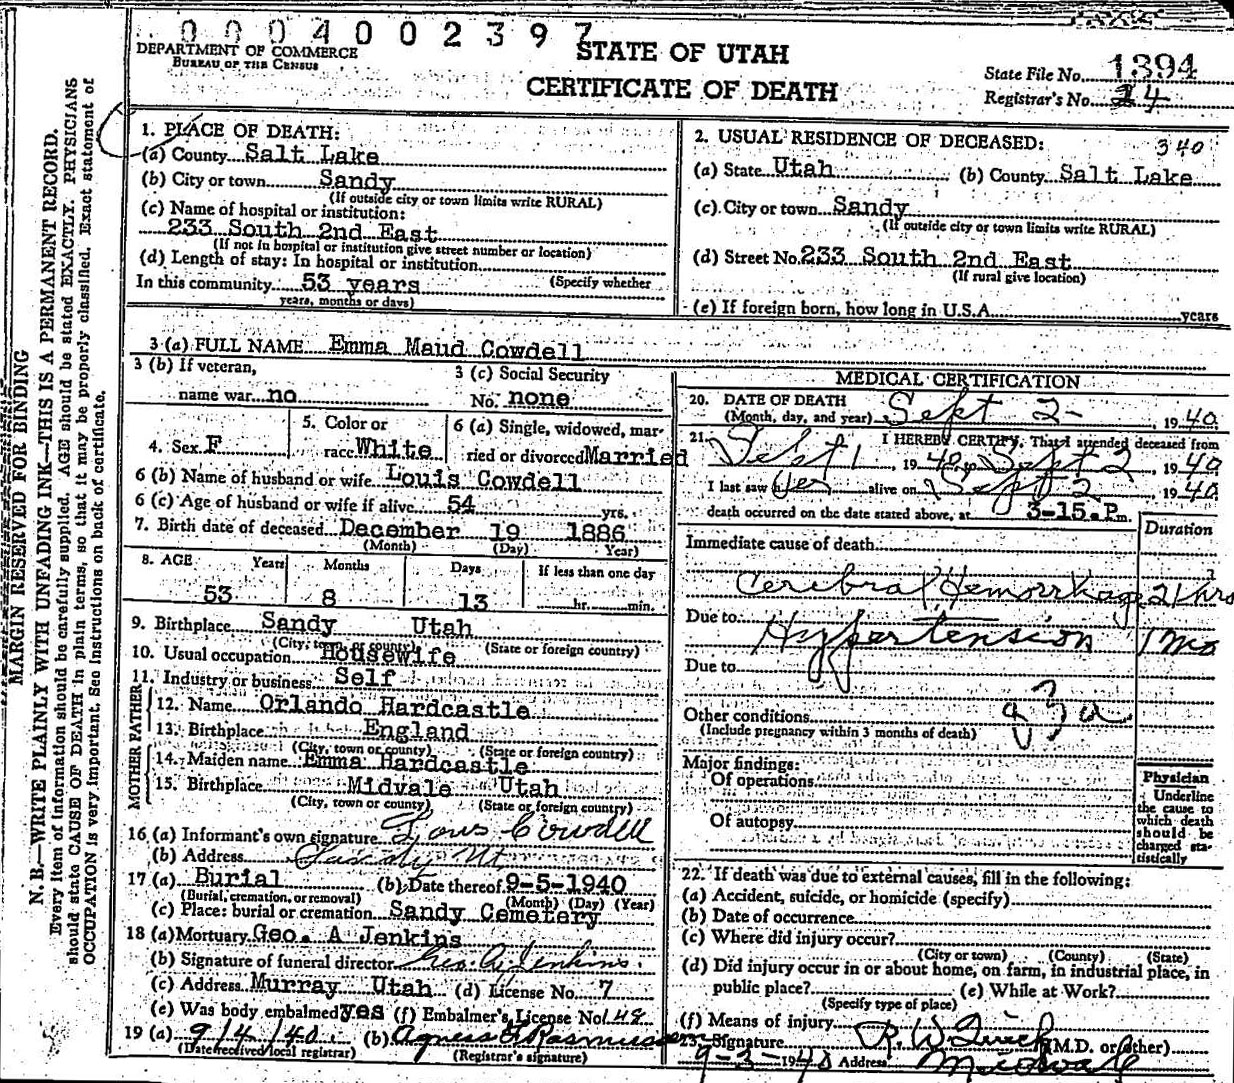 0004002397
DEPARTMENT OF COMMERCE
BUREAU OF THE CENSUS
STATE OF UTAH
CERTIFICATE OF DEATH
State File No. 1894
Registrar's No. 24
MARGIN RESERVED FOR BINDING
N. B.—WRITE PLAINLY WITH UNFADING INK—THIS IS A PERMANENT RECORD.
Every item of information should be carefully supplied. AGE should be stated EXACTLY. PHYSICIANS
should state CAUSE OF DEATH in plain terms, so that it may be properly classified. Exact statement of
OCCUPATION is very important. See instructions on back of certificate.
1. PLACE OF DEATH:
(a) County Salt Lake
(b) City or town Sandy
(If outside city or town limits write RURAL)
(c) Name of hospital or institution:
233 South 2nd East
(If not in hospital or institution give street number or location)
(d) Length of stay: In hospital or institution
In this community 53 years (Specify whether
years, months or days)
2. USUAL RESIDENCE OF DECEASED: 340
(a) State Utah (b) County Salt Lake
(c) City or town Sandy
(If outside city or town limits write RURAL)
(d) Street No. 233 South 2nd East
(If rural give location)
(e) If foreign born, how long in U.S.A. years
3 (a) FULL NAME Emma Maud Cowdell
3 (b) If veteran,
name war no
3 (c) Social Security
No. none
4. Sex F
5. Color or
race White
6 (a) Single, widowed, mar-
ried or divorced Married
6 (b) Name of husband or wife Louis Cowdell
6 (c) Age of husband or wife if alive 54 yrs.
7. Birth date of deceased December 19 1886
(Month) (Day) Year)
8. AGE Years Months Days If less than one day
53 8 13 hr. min.
9. Birthplace Sandy Utah
(City, town or county) (State or foreign country)
10. Usual occupation Housewife
11. Industry or business Self
FATHER
12. Name Orlando Hardcastle
13. Birthplace England
(City, town or county) (State or foreign country)
MOTHER
14. Maiden name Emma Hardcastle
15. Birthplace Midvale Utah
(City, town or county) (State or foreign country)
16 (a) Informant's own signature Louis Cowdell
(b) Address Ut
17 (a) Burial (b) Date thereof 9-5-1940
(Burial, cremation, or removal) (Month) (Day) (Year)
(c) Place: burial or cremation Sandy Cemetery
18 (a) Mortuary Geo. A Jenkins
(b) Signature of funeral director Geo. A. Jenkins.
(c) Address Murray Utah (d) License No. 7
(e) Was body embalmed yes (f) Embalmer's License No. 148
19 (a) 9/4/40. (b) Agness Rasmusse
(Date received local registrar) (Registrar's signature)
MEDICAL CERTIFICATION
20. DATE OF DEATH
(Month, day, and year) Sept 2- , 1940.
21. I HEREBY CERTIFY, That I attended deceased from
Sept 1 1940, to Sept 2 , 1940
I last saw her alive on Sept 2 , 1940
death occurred on the date stated above, at 3-15.Pm.
Duration
Immediate cause of death
Cerebral Hemorrhage 21 hrs
Due to Hypertension 1 Mo
Due to
Other conditions
(Include pregnancy within 3 months of death)
Major findings:
Of operations
Of autopsy
Physician
Underline
the cause to
which death
should be
charged sta-
tistically
22. If death was due to external causes, fill in the following:
(a) Accident, suicide, or homicide (specify)
(b) Date of occurrence
(c) Where did injury occur?
(City or town) (County) (State)
(d) Did injury occur in or about home, on farm, in industrial place, in
public place? (e) While at Work?
(Specify type of place)
(f) Means of injury
23. Signature R. W. Quick (M.D. or other)
9-3-1940 Address Midvale